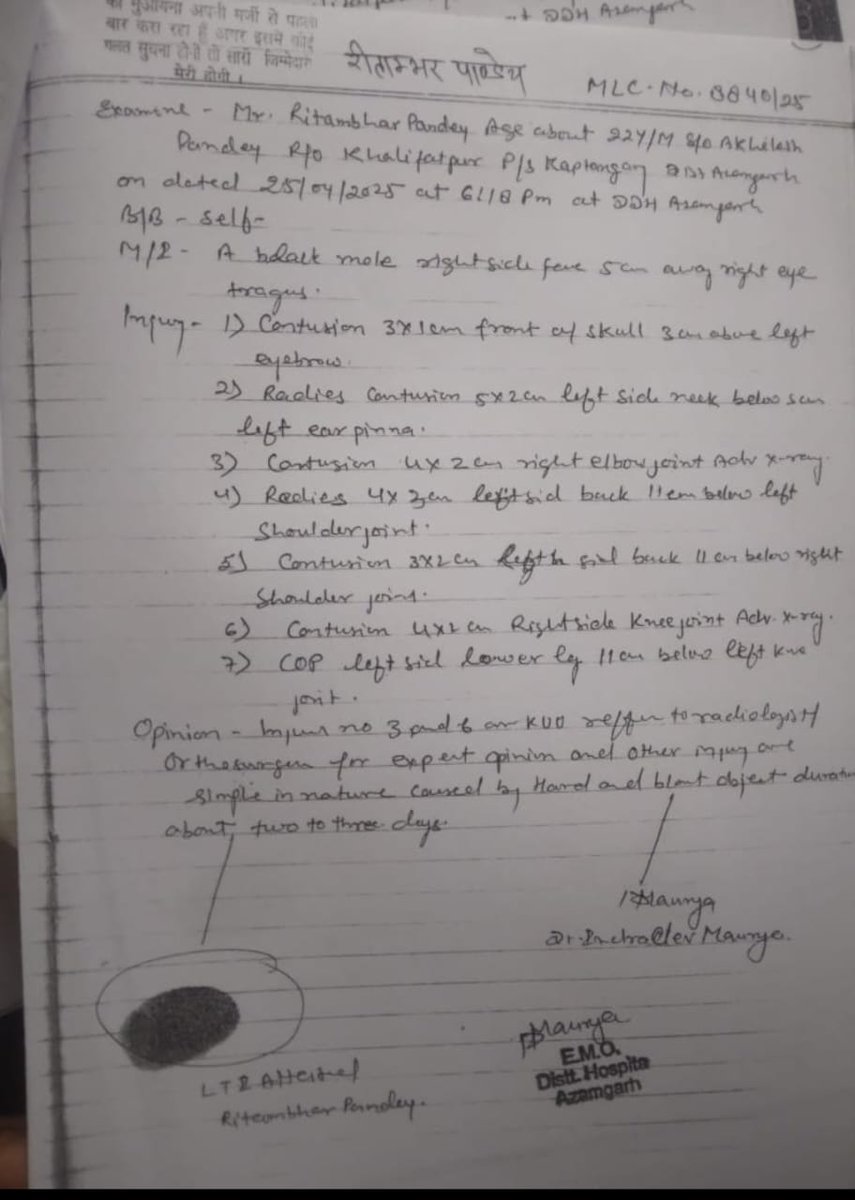 ..t DDH Azamgarh
का मुआयना अपनी मर्जी से पहली
बार करा रहा हूँ अगर इसमें कोई
गलत सूचना होगी तो सारी जिम्मेदारी
मेरी होगी ।
रीताम्भर पाण्डेय
MLC. No. 8840/25
Examine - Mr. Ritambhar Pandey Age about 22Y/M S/o Akhilesh
Pandey R/o Khalifatpur P/s Kaptanganj Azamgarh
on dated 25/04/2025 at 6:18 Pm at DDH Azamgarh
B/B - Self-
M/I - A black mole right side face 5cm away right eye
tragus.
Injury - 1) Contusion 3x1cm front of skull 3cm above left
eyebrow.
2) Radies Contusion 5x2cm left side neck below 5cm
left ear pinna.
3) Contusion 4x2cm right elbow joint Adv x-ray.
4) Radies 4x3cm left sid back 11cm below left
Shoulder joint.
5) Contusion 3x2cm back 11cm below right
Shoulder joint.
6) Contusion 4x2cm Right side Knee joint Adv. x-ray.
7) COP left sid lower leg 11cm below left knee
joint.
Opinion - Injury no 3 and 6 are KUO reffer to radiologist/
Orthosurgen for expert opinion and other injury are
simple in nature caused by Hard and blunt object duration
about, two to three days.
Maurya
Dr. Indradev Maurya.
Maurya
E.M.O.
Distt. Hospita
Azamgarh
LTI Attested
Ritambhar Pandey.